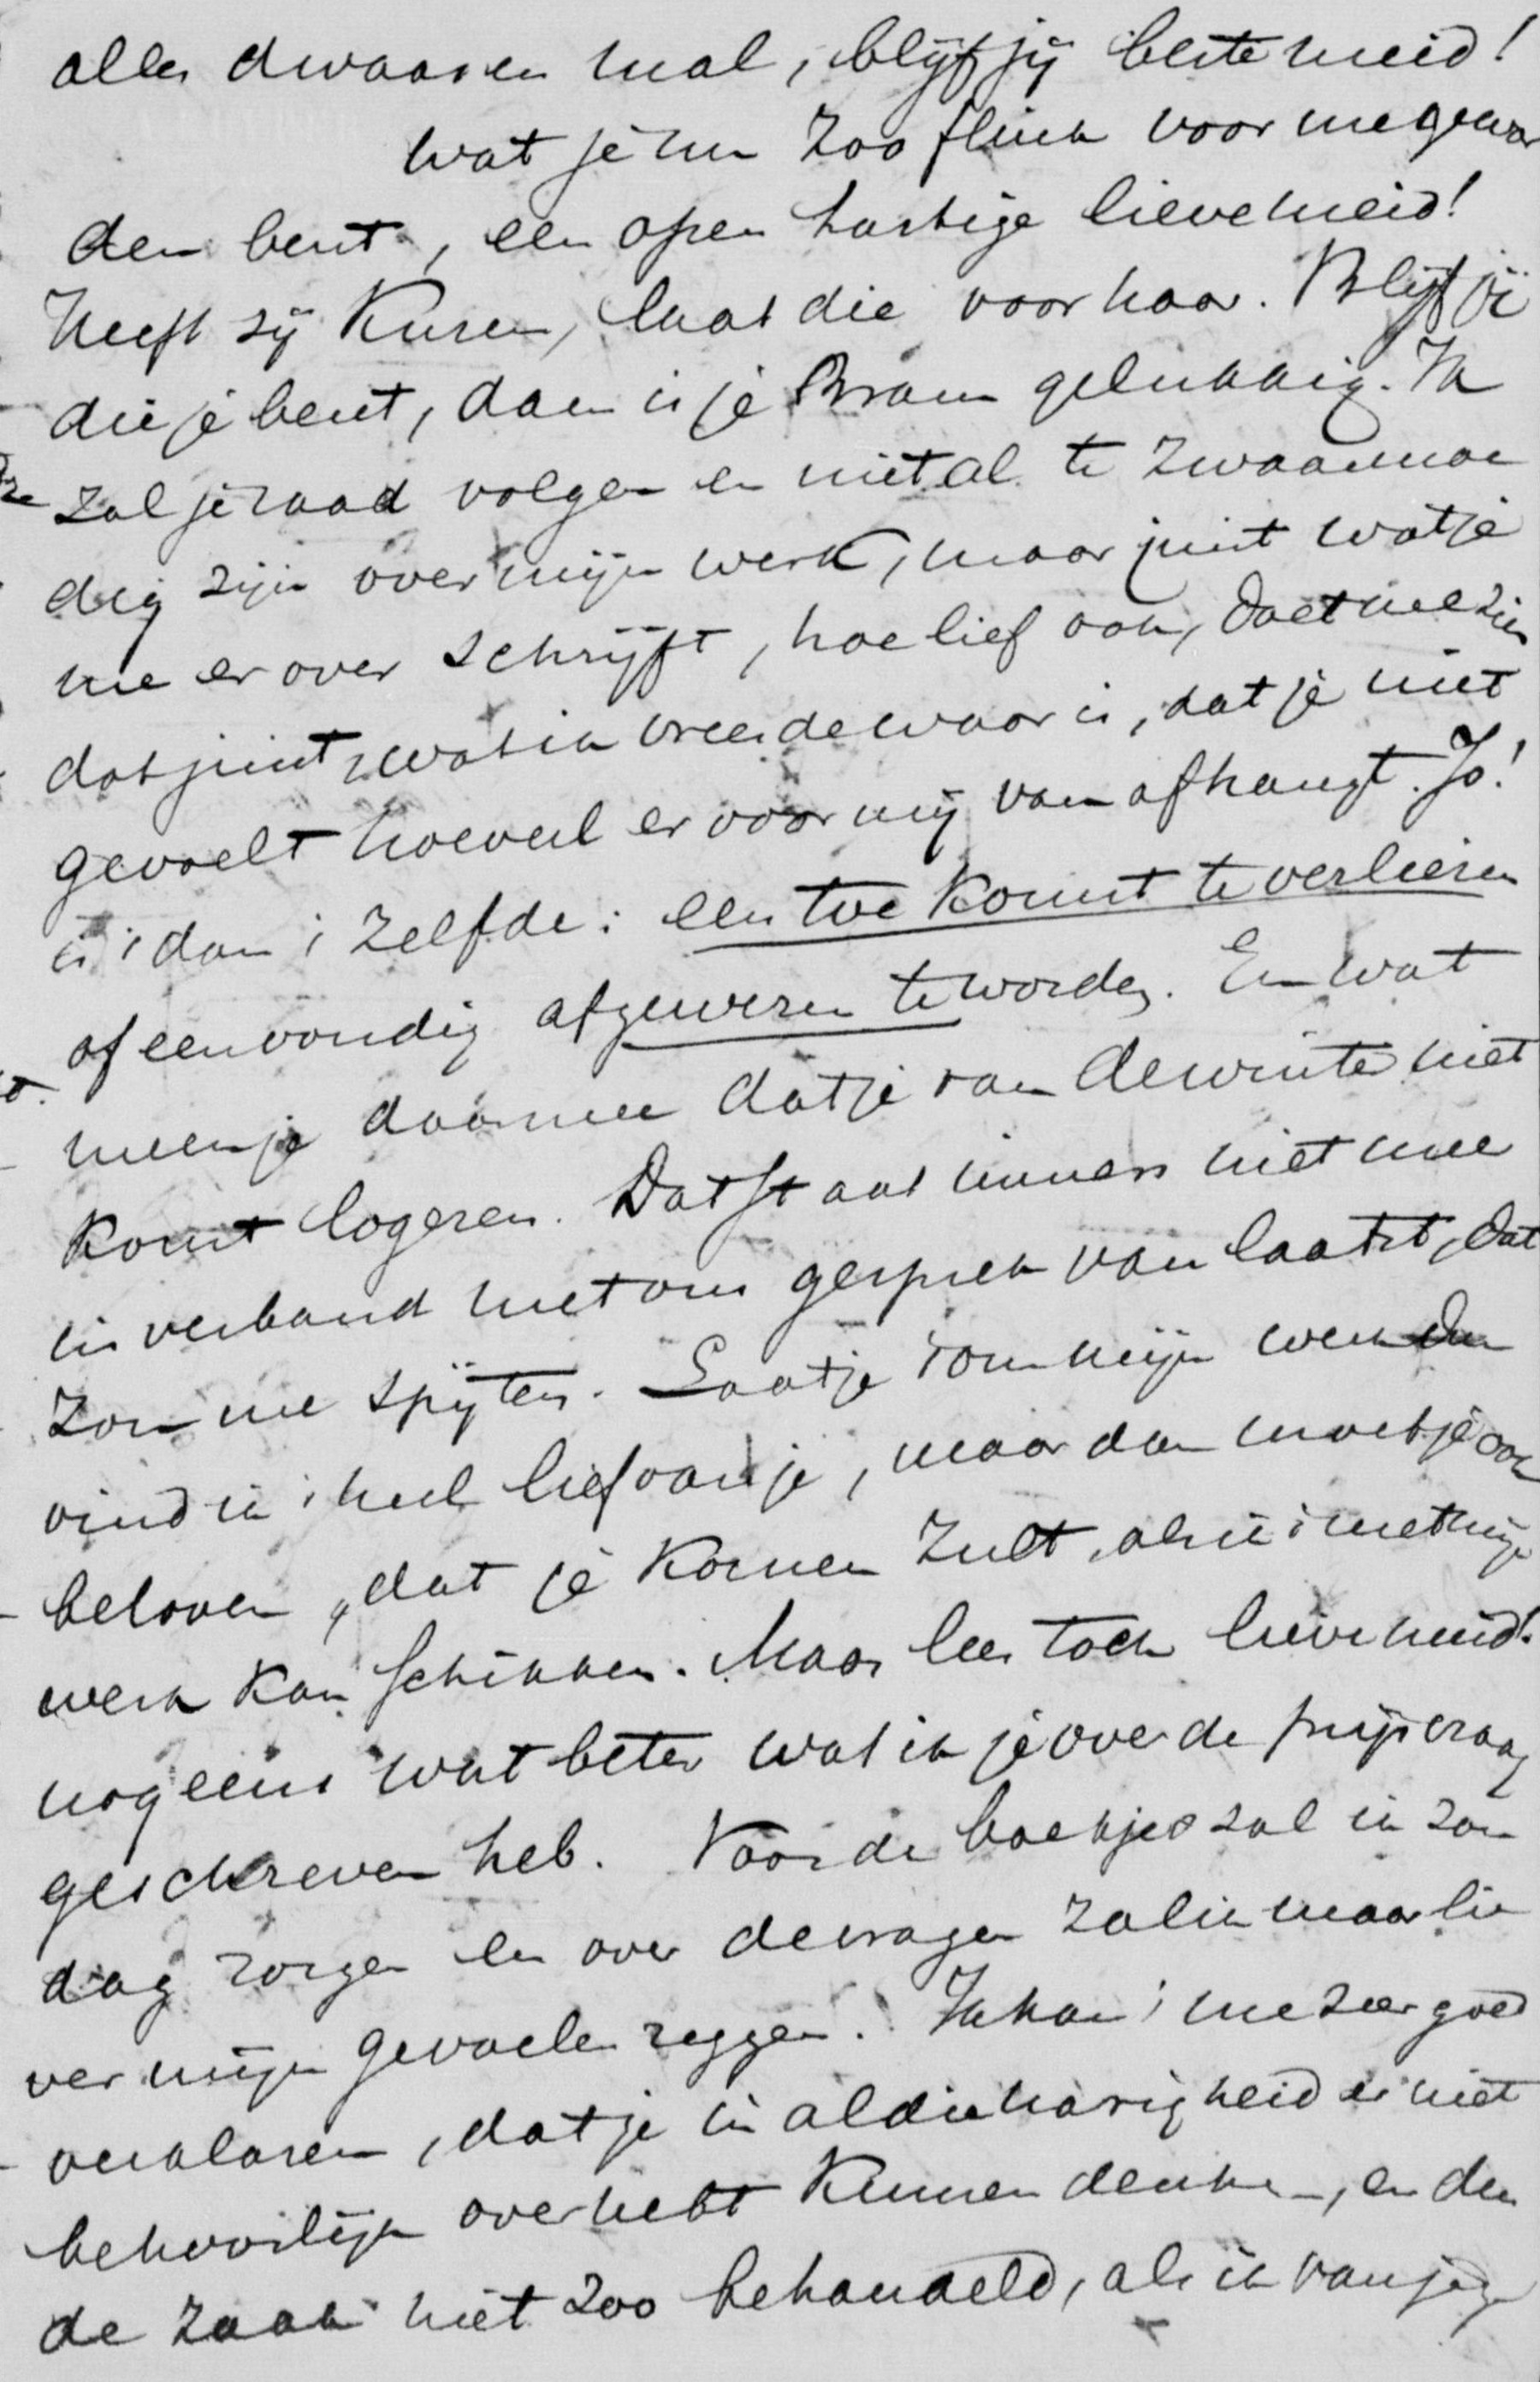 alles dwaas en mal, blijf jij beste meid!
wat je nu zoo flink voor me gewor
den bent, een open hartige lieve meid!
Heeft zij Kuren, laat die voor haar. Blijf jij
die je bent, dan is je Bram gelukkig. Ik
zal je raad volgen en niet al te zwaarmoe
dig zijn over mijn werk, maar juist wat je
me er over schrijft, hoe lief ook, doet me zien
dat juist, wat ik vreesde waar is, dat je niet
gevoelt hoeveel er voor mij van afhangt. Jo!
is 't dan 't zelfde: een toe komst te verliezen
of eenvoudig afgewezen te worden. En wat
meen je daarmee dat je van de winter niet
komt logeren. Dat staat immers niet mee
in verband met ons gesprek van laatst, dat
zou me spijten. Laat je 't om mijn werk dan
vind ik 't heel lief van je, maar dan moet je ook
beloven, dat je komen zult, als ik 't met mijn
werk kan schikken. Maar lees toch lieve meid!
nog eens wat beter wat ik je over de prijsvraag
geschreven heb. Voor de boekjes zal ik Zon
dag zorgen en over de vragen zal ik maar lie
ver mijn gevoelen zeggen. Ik kan 't me zeer goed
verklaren, dat je in al die harigheid er niet
behoorlijk over hebt kunnen denken, en den
de zaak niet zoo behandeld, als ik van je